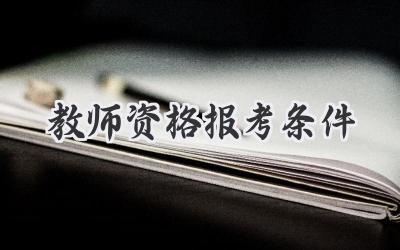 教师资格报考条件